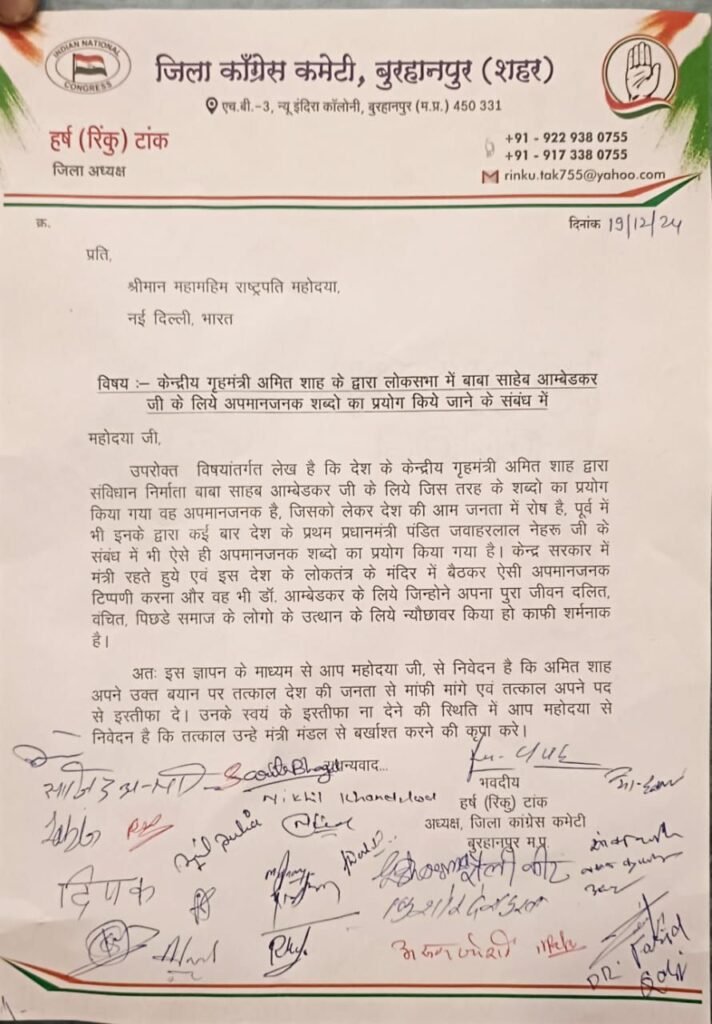 INDIAN NATIONAL
CONGRESS
जिला काँग्रेस कमेटी, बुरहानपुर (शहर)
एच.बी.-3, न्यू इंदिरा कॉलोनी, बुरहानपुर (म.प्र.) 450 331
हर्ष (रिंकु) टांक
जिला अध्यक्ष
+91 - 922 938 0755
+91 - 917 338 0755
rinku.tak755@yahoo.com
क्र.
दिनांक 19/12/24
प्रति,
श्रीमान महामहिम राष्ट्रपति महोदया,
नई दिल्ली, भारत
विषय :– केन्द्रीय गृहमंत्री अमित शाह के द्वारा लोकसभा में बाबा साहेब आम्बेडकर
जी के लिये अपमानजनक शब्दो का प्रयोग किये जाने के संबंध में
महोदया जी,
उपरोक्त विषयांतर्गत लेख है कि देश के केन्द्रीय गृहमंत्री अमित शाह द्वारा
संविधान निर्माता बाबा साहब आम्बेडकर जी के लिये जिस तरह के शब्दो का प्रयोग
किया गया वह अपमानजनक है, जिसको लेकर देश की आम जनता में रोष है, पूर्व में
भी इनके द्वारा कई बार देश के प्रथम प्रधानमंत्री पंडित जवाहरलाल नेहरू जी के
संबंध में भी ऐसे ही अपमानजनक शब्दो का प्रयोग किया गया है। केन्द्र सरकार में
मंत्री रहते हुये एवं इस देश के लोकतंत्र के मंदिर में बैठकर ऐसी अपमानजनक
टिप्पणी करना और वह भी डॉ. आम्बेडकर के लिये जिन्होने अपना पुरा जीवन दलित,
वंचित, पिछडे समाज के लोगो के उत्थान के लिये न्यौछावर किया हो काफी शर्मनाक
है।
अतः इस ज्ञापन के माध्यम से आप महोदया जी, से निवेदन है कि अमित शाह
अपने उक्त बयान पर तत्काल देश की जनता से मांफी मांगे एवं तत्काल अपने पद
से इस्तीफा दे। उनके स्वयं के इस्तीफा ना देने की स्थिति में आप महोदया से
निवेदन है कि तत्काल उन्हे मंत्री मंडल से बर्खाश्त करने की कृपा करे।
धन्यवाद...
भवदीय
Nikhil Khandelwal
हर्ष (रिंकु) टांक
अध्यक्ष, जिला कांग्रेस कमेटी
बुरहानपुर म.प्र.
दिपक
DR. Farid